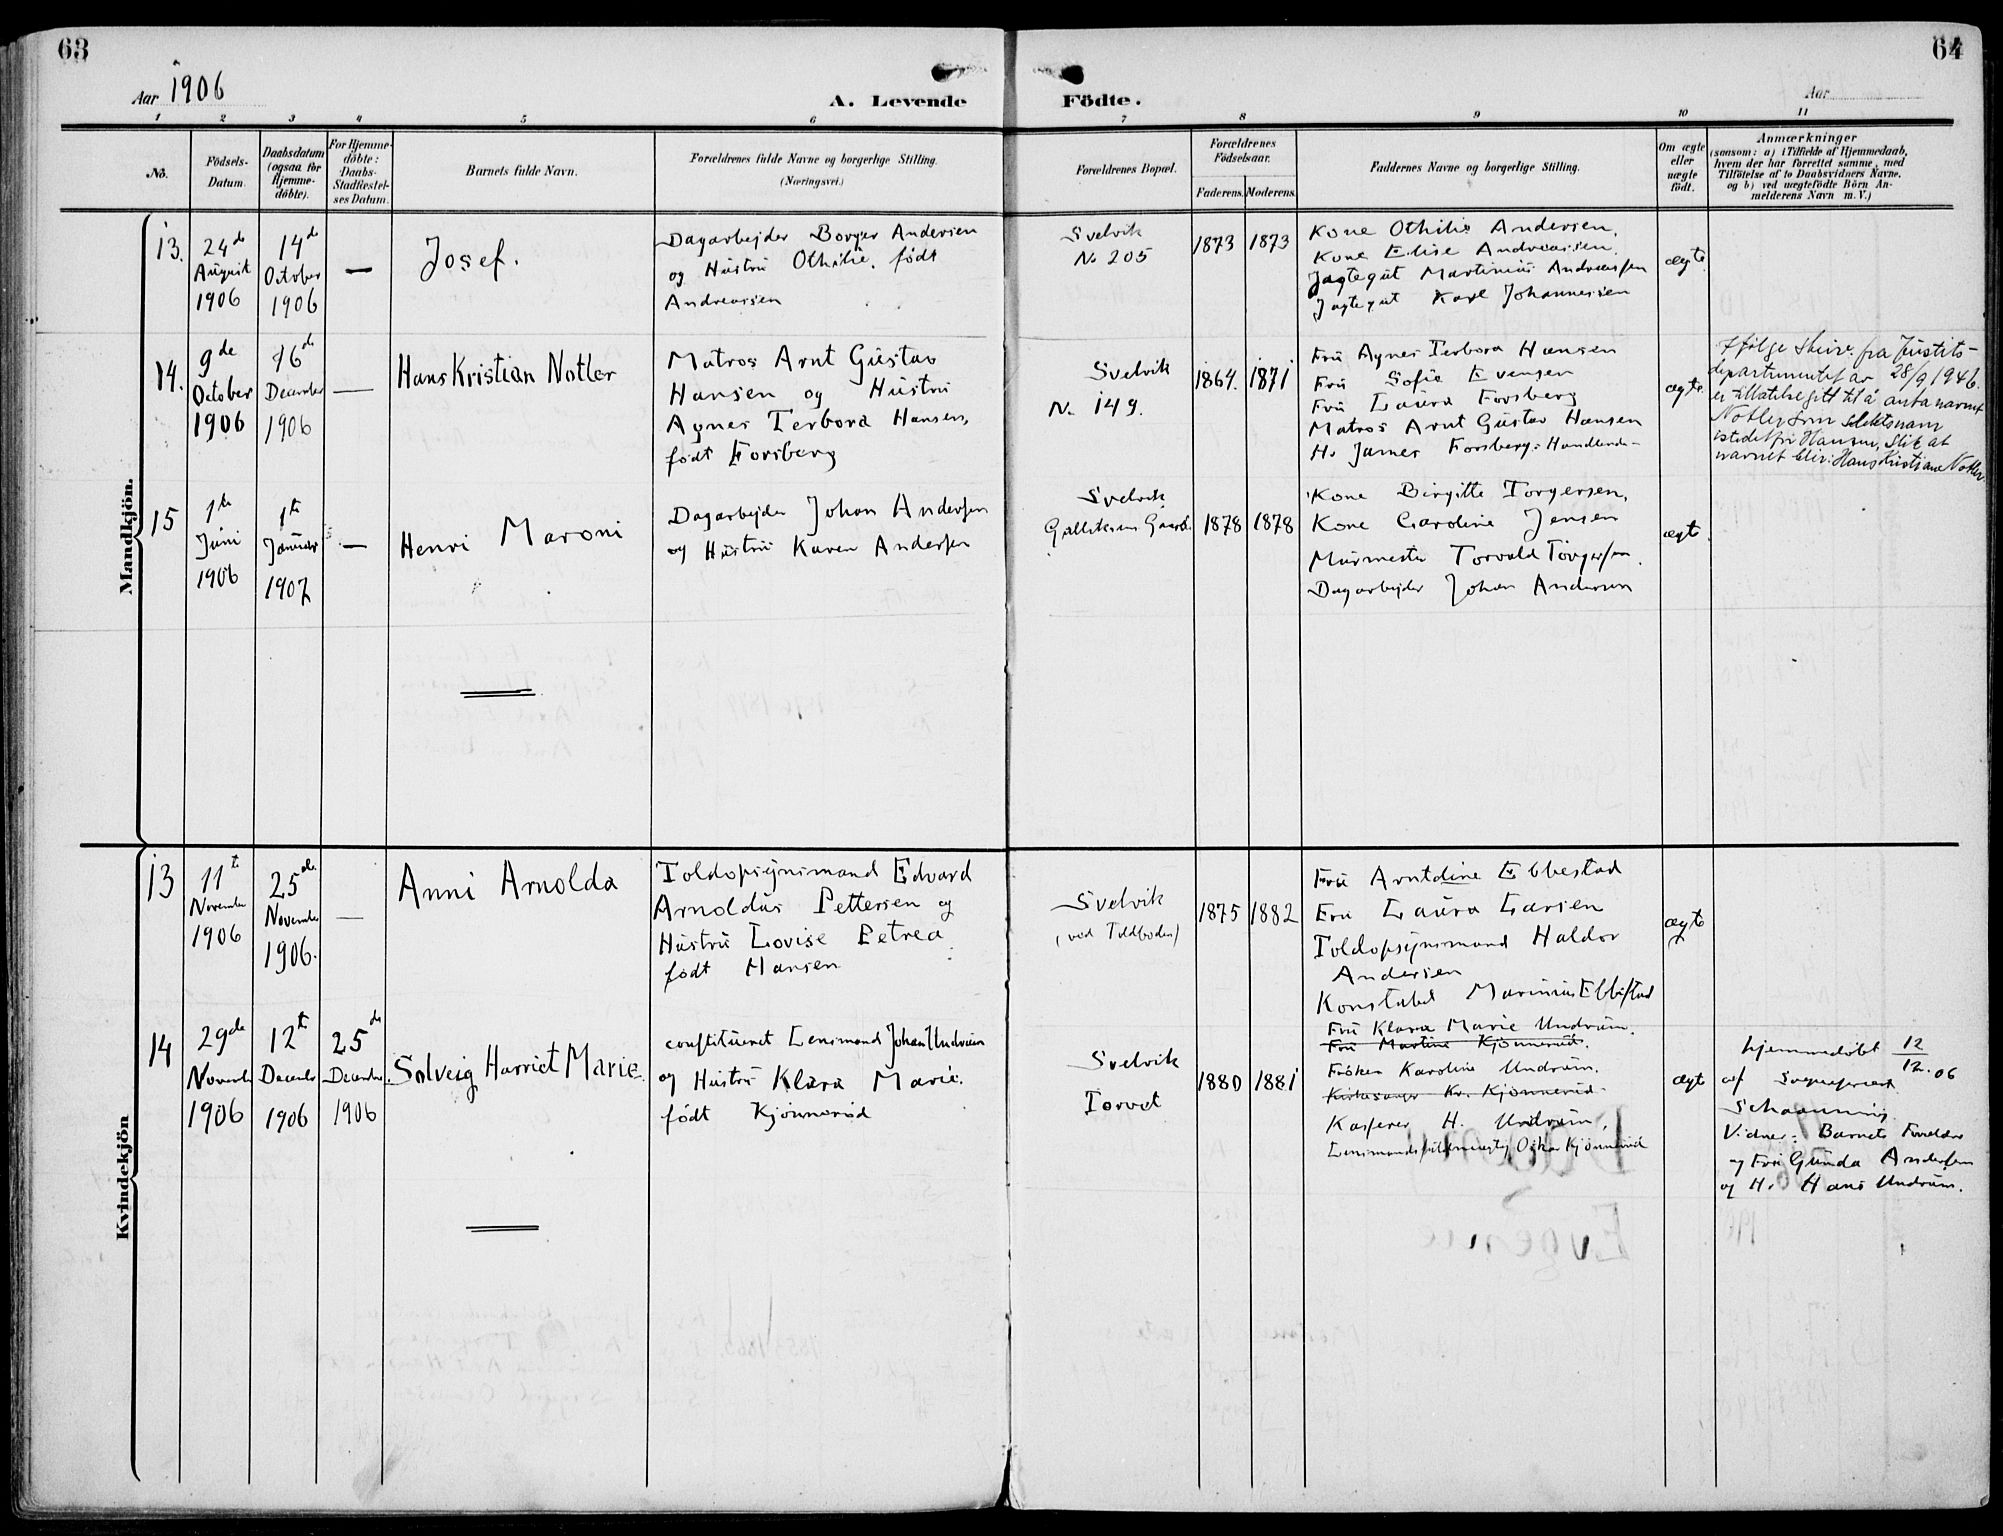 63
64
Aar 1906
A. Levende
Födte.
Aar
1
2
3
4
5
6
7
8
9
10
11
No.
Födsels-
Datum.
Daabsdatum
(ogsaa for
Hjemme-
döbte).
For Hjemme-
döbte:
Daabs-
Stadfæstel-
ses Datum.
Barnets fulde Navn.
Forældrenes fulde Navne og borgerlige Stilling.
(Næringsvei.)
Forældrenes Bopæl.
Forældrenes
Födselsaar.
Faderens.
Moderens.
Faddernes Navne og borgerlige Stilling.
Om ægte
eller
uægte
födt.
Anmærkninger
(saasom: a) i Tilfælde af Hjemmedaab,
hvem der har forrettet samme, med
Tilföielse af to Daabsvidners Navne,
og b) ved uægtefödte Börn An-
melderens Navn m. V.)
Mandkjön.
13.
24de
August
1906
14de
October
1906
—
Josef.
Dagarbejder Borger Andersen
og Hustru Othilie. født
Andreassen
Svelvik
No 205
1873
1873
Kone Othilie Andersen,
Kone Elise Andreassen.
Jagtegut Martinius Andreassen
Jagtegut Karl Johannessen
ægte.
14.
9de
October
1906
16de
December
1906
—
Hans Kristian Notler
Matros Arnt Gustav
Hansen og Hustru
Agnes Terbora Hansen,
født Forsberg
Svelvik
No 149.
1864.
1871
Fru Agnes Terbora Hansen
Fru Sofie Evensen
Fru Laura Forsberg
Matros Arnt Gustav Hansen
H. James Forsberg: Handlende-
ægte.
Ifølge skriv. fra Justits-
departementet av 28/9 1946.
er tillatelse gitt til å anta navnet
Notler som slektsnavn
istedetfor Hansen, slik at
navnet blir: Hans Kristian Notler
15
1te
Juni
1906
1te
Januar
1907
—
Henri Maroni
Dagarbejder Johan Andersen
og Hustru Karen Andersen
Svelvik
1878
1878
Kone Birgitte Torgersen,
Kone Caroline Jensen
Murmester Torvald Torgersen.
Dagarbejder Johan Andersen
ægte.
Kvindekjön
13
11te
November
1906
25de
November
1906.
—
Anni Arnolda
Toldopsynsmand Edvard
Arnoldus Pettersen og
Hustru Lovise Petrea
født Hansen
Svelvik
(ved Toldboden)
1875
1882
Fru Arntdine Ebbestad
Fru Laura Larsen
Toldopsynsmand Haldor
Andersen
Konstabel Marinius Ebbestad
ægte
14
29de
Novemb
1906
12te
Decemb
1906
25de
December.
1906
Solveig Harriet Marie.
constitueret Lensmand Johan Undrum
og Hustru Klara Marie.
født Kjønnerød
Svelvik
Torvet
1880
1881
Fru Klara Marie Undrum.
Fru Martine Kjønnerød.
Frøken Karoline Undrum.
Kirkesanger Kr. Kjønnerød
Kasserer H. Undrum,
Lensmandsfuldmægtig Oskar Kjønnerød
ægte
hjemmedøbt 12/12.06
af Sogneprest
Schaanning.
Vidner: Barnets Forældre
og Fru Gunda Andersen
og H. Hans Undrum.